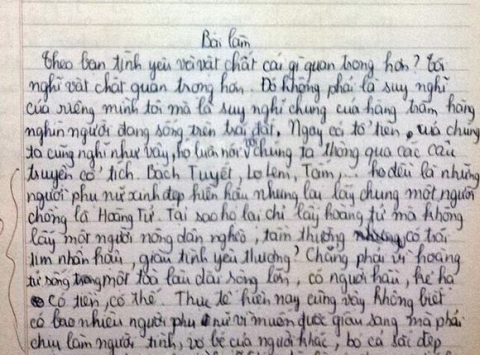 Bài làm
Theo bạn tình yêu và vật chất cái gì quan trọng hơn? Tôi
nghĩ vật chất quan trọng hơn. Đó không phải là suy nghĩ
của riêng mình tôi mà là suy nghĩ chung của hàng trăm hàng
nghìn người đang sống trên trái đất. Ngay cả tổ tiên của chúng
ta cũng nghĩ như vậy, họ luôn nói với chúng ta thông qua các câu
truyện cổ tích. Bạch Tuyết, Lọ Lem, Tấm,... họ đều là những
người phụ nữ xinh đẹp hiền hậu nhưng lại lấy chung một người
chồng là Hoàng Tử. Tại sao họ lại chỉ lấy hoàng tử mà không
lấy một người nông dân nghèo, tầm thường có trái
tim nhân hậu, giàu tình yêu thương? Chẳng phải vì hoàng
tử sống trong một toà lâu đài sống lớn, có người hầu, kẻ hạ
có tiền, có thế. Thực tế hiện nay cũng vậy không biết
có bao nhiêu người phụ nữ vì muốn được giàu sang mà phải
chịu làm người tình, vợ bé của người khác, bỏ cả sôi đẹp